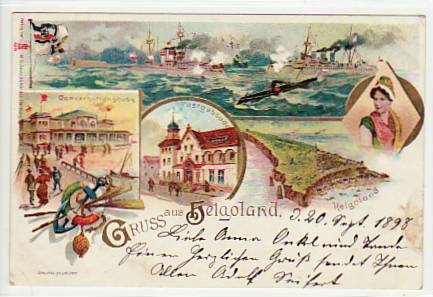 Conversationshaus
Postgebäude
Helgoland
GRUSS aus Helgoland.
d. 20. Sept. 1898
Liebe Anna Onkel und Tante
Einen Herzlichen Gruß sendet Ihnen
Allen Adolf Seifert